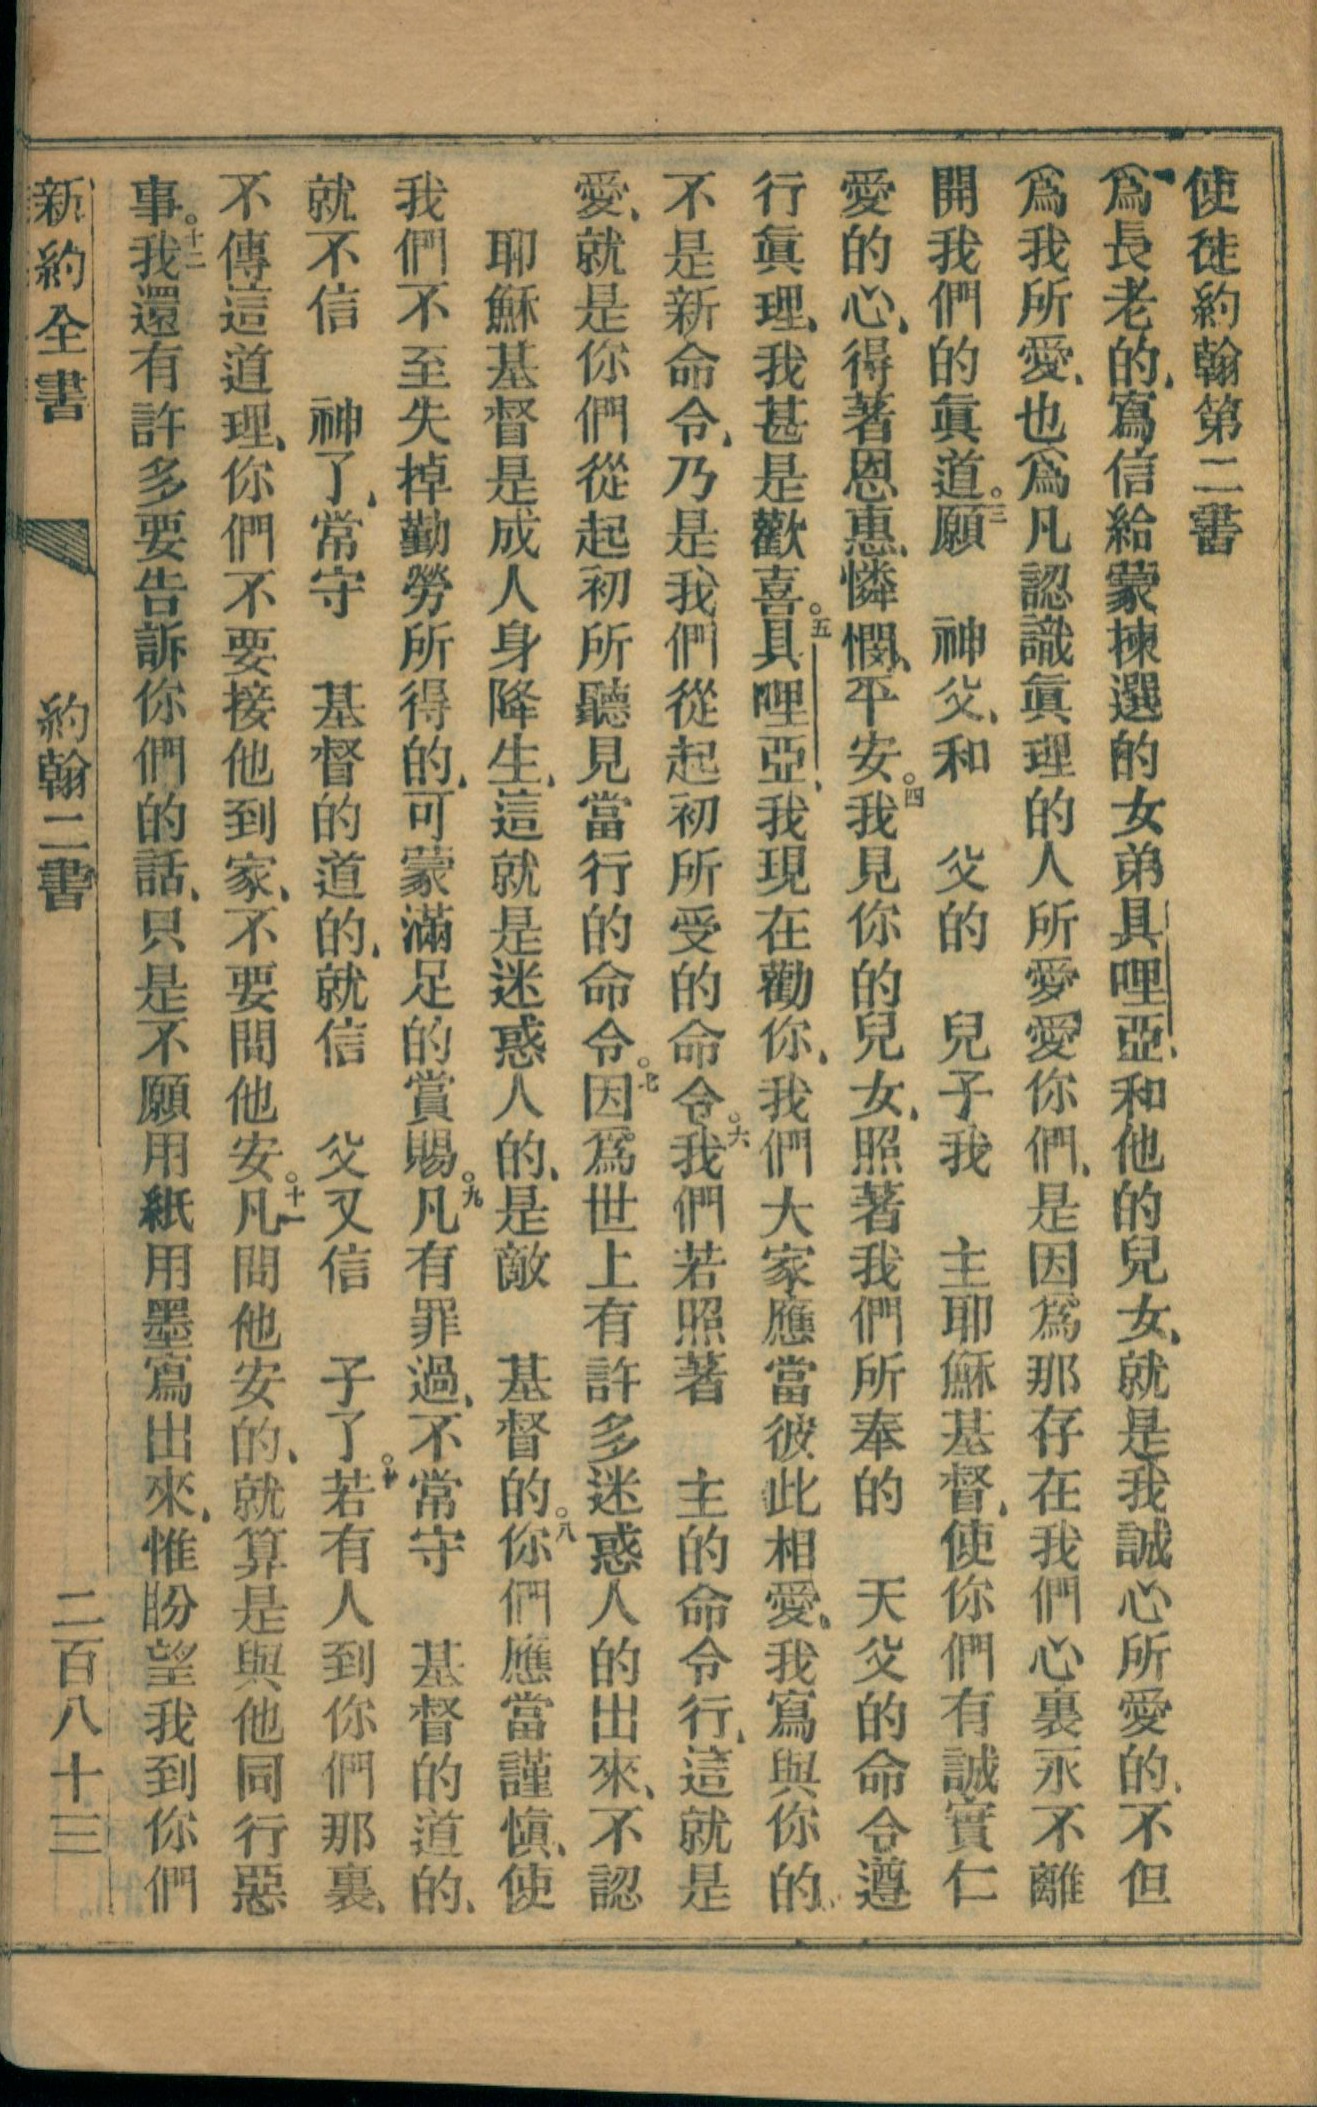 使徒約翰第二書
爲長老的、寫信給蒙揀選的女弟具哩亞、和他的兒女、就是我誠心所愛的、不但
爲我所愛、也爲凡認識眞理的人所愛愛你們、是因爲那存在我們心裏永不離
開我們的眞道。三願　神父、和　父的　兒子我　主耶穌基督、使你們有誠實仁
愛的心、得著恩惠、憐憫、平安。四我見你的兒女、照著我們所奉的　天父的命令遵
行眞理、我甚是歡喜。五具哩亞、我現在勸你、我們大家應當彼此相愛、我寫與你的、
不是新命令、乃是我們從起初所受的命令。六我們若照著　主的命令行、這就是
愛、就是你們從起初所聽見當行的命令。七因爲世上有許多迷惑人的出來、不認
　耶穌基督是成人身降生、這就是迷惑人的、是敵　基督的。八你們應當謹愼、使
我們不至失掉勤勞所得的、可蒙滿足的賞賜。九凡有罪過、不常守　基督的道的、
就不信　神了、常守　基督的道的、就信　父又信　子了。十若有人到你們那裏、
不傳這道理、你們不要接他到家、不要問他安。十一凡問他安的、就算是與他同行惡
事。十二我還有許多要告訴你們的話、只是不願用紙用墨寫出來、惟盼望我到你們
新約全書　約翰二書　二百八十三